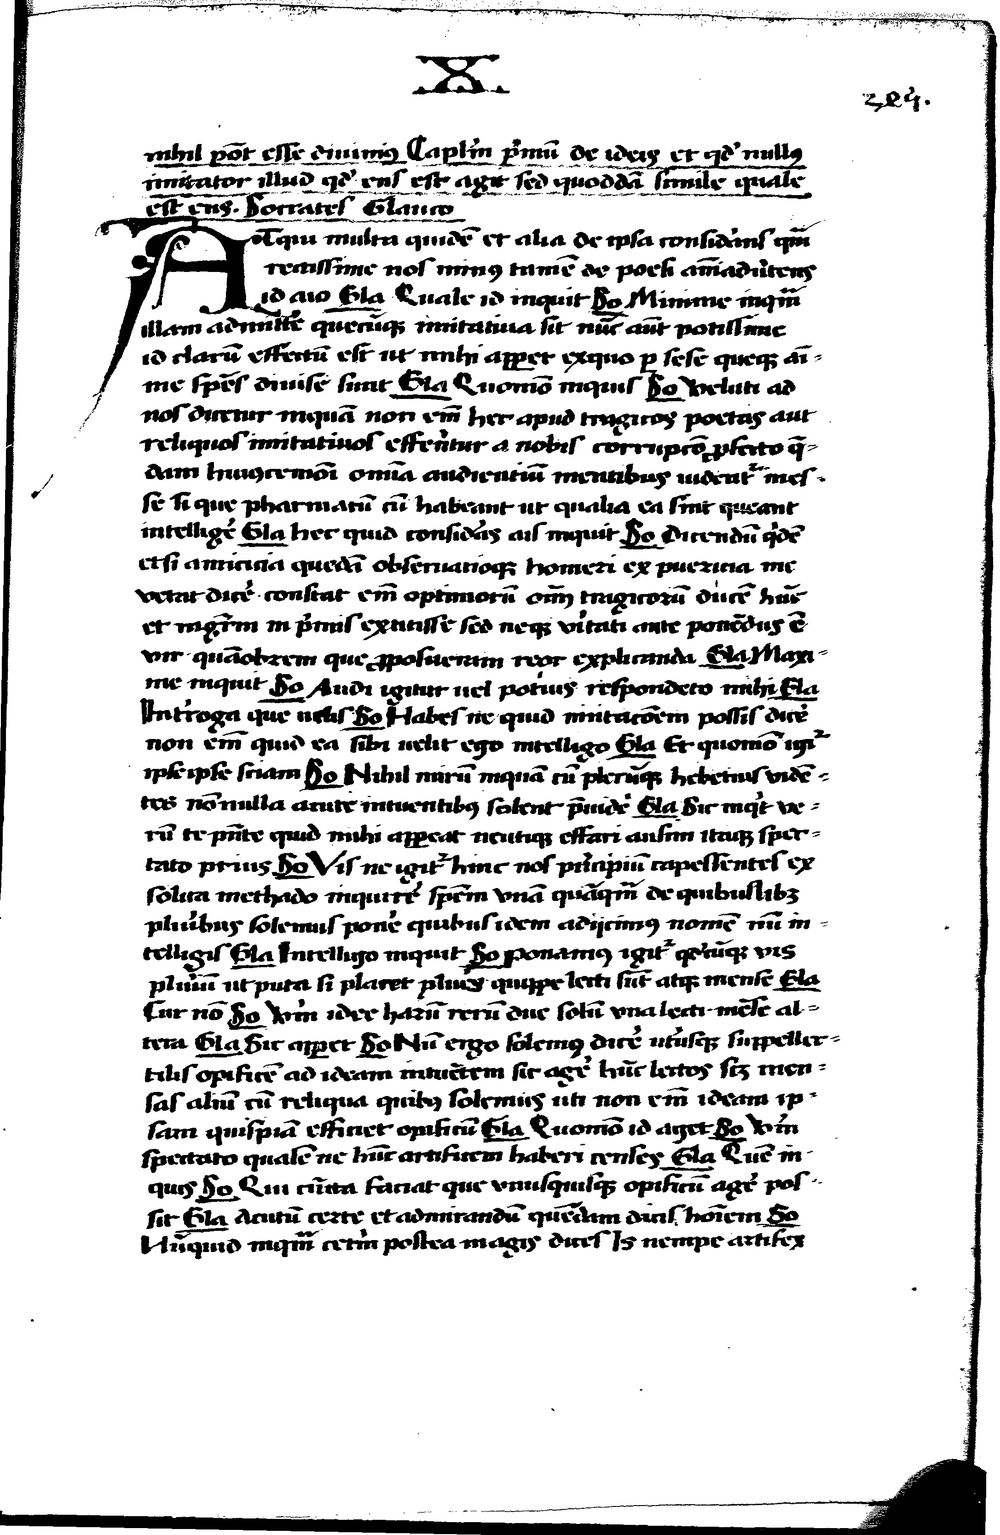 X
324.
nihil pōt esse diuiniꝰ Capl'm p'mū de ideis et qd' nullꝰ
imitator illud qd' ens est agit sed quoddā simile quale
est ens. Socrates Glauco
ATqui multa quidē et alia de ipsa consid'ans qm̄
rectissime nos minꝰ tamē de poesi am̄aduertens
id aio Gla Quale id inquit So Minime inqm̄
illam admitt'e quecūqꝫ imitatiua sit nūc aūt potissime
id clarū effectū est ut mihi appet exquo p sese queqꝫ ai=
me spēs diuise sunt Gla Quomō inquis So Veluti ad
nos dicetur inquā non em̄ hec apud tragicos poetas aut
reliquos imitatiuos efferētur a nobis corrupcō pfecto q̄=
dam huiꝰcemōi omīa audientiū mentibus uident' ines-
se si que pharmatū cū habeant ut qualia ea sint queant
intellig'e Gla hec quid consid'as ais inquit So Dicendū q'dē
etsi amicicia quedā obseruatioqꝫ homeri ex puericia me
vetat dic'e constat em̄ optimorū oīm tragicorū ducē hūc
et mgr̄m in p'mis extitisse sed neqꝫ v'itati ante ponēdus ē
vir quāobrem que pposueram reor explicanda Gla Maxi=
me inquit So Audi igitur uel potius respondeto mihi Gla
Int'roga que uelis So Habes ne quid imitacōem possis dic'e
non em̄ quid ea sibi uelit ego intelligo Gla Et quomō igit'
ipse ipse sciam So Nihil mirū inquā cū plerūqꝫ hebetius vidē=
tes nōnulla acute intuentibꝰ solent p̄uide' Gla Sic inq't ve=
rū te pn̄te quid mihi appeat neutiqꝫ effari ausim itaqꝫ spec=
tato prius So Vis ne igit' hinc nos principiū capessentes ex
solita methodo inquire' spēm vnā quāqm̄ de quibuslibꝫ
pluribus solemus pone' quibus idem adijcimꝰ nomē nū in=
telligis Gla Intelligo inquit So ponamꝰ igit' q'cūqꝫ vis
plurīū ut puta si placet plures quippe lecti sūt atqꝫ mense Gla
Cur nō So Vr̄m idee harū rerū due solū vna lecti mēse al=
tera Gla Sic appet So Nū ergo solemꝰ dic'e ut'usqꝫ suppellec=
tilis opificē ad ideam intuētem sic age' hūc lectos sꝫ men=
sas aliū cū reliqua quibꝰ solemus uti non em̄ ideam ip-
sam quispiā efficiet opificū Gla Quomō id aget So Vr̄m
spectato qualē ne hūc artificem haberi censes Gla Quē in-
quis So Qui cūcta faciat que vniusquisqꝫ opificū age' pos-
sit Gla Acutū certe et admirandū quēdam dicis hoīem So
Nūquid inqm̄ cet'm postea magis dices Is nempe artifex